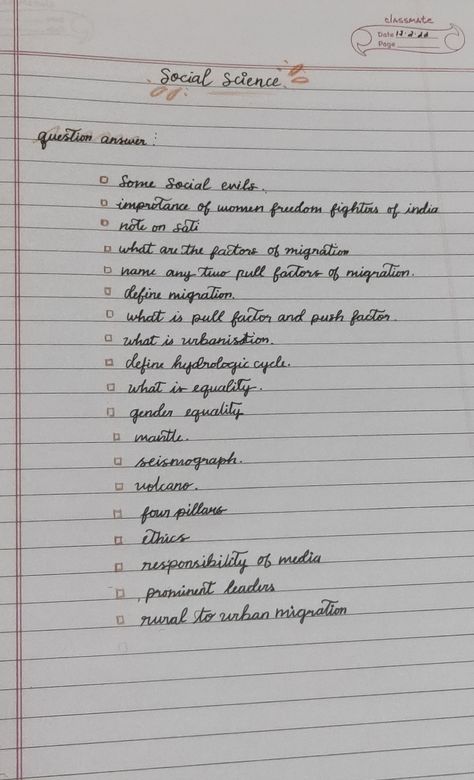 classmate
Date 12.2.22
Page
Social Science
question answer :
some social evils.
improtance of women freedom fighters of india
note on sati
what are the factors of migration
name any two pull factors of migration.
define migration.
what is pull factor and push factor.
what is urbanisation.
define hydrologic cycle.
what is equality.
gender equality
mantle.
seismograph.
volcano.
four pillars
ethics
responsibility of media
prominent leaders
rural to urban migration